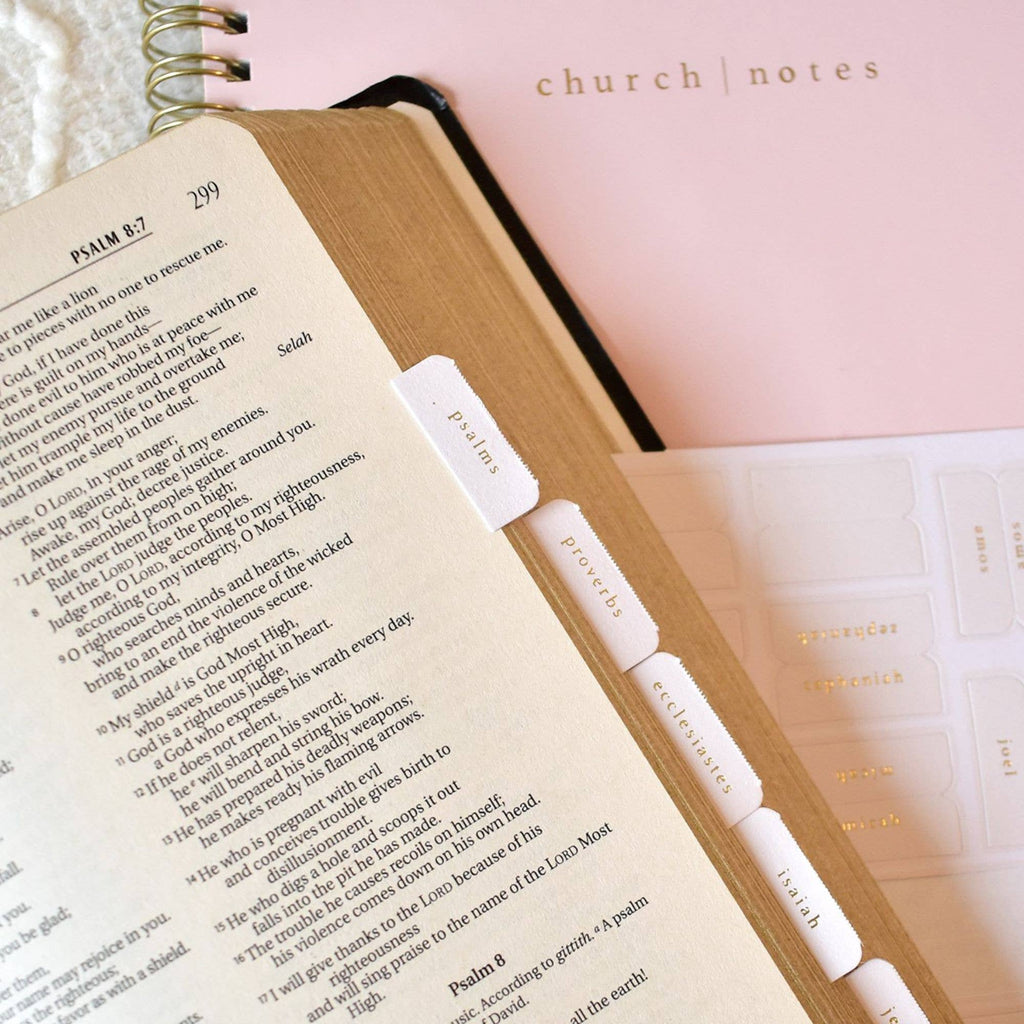 church | notes
299
PSALM 8:7
ar me like a lion
to pieces with no one to rescue me.
God, if I have done this
ere is guilt on my hands—
done evil to him who is at peace with me
without cause have robbed my foe—
let my enemy pursue and overtake me;
him trample my life to the ground
and make me sleep in the dust.
Selah
Arise, O LORD, in your anger;
rise up against the rage of my enemies.
Awake, my God; decree justice.
7 Let the assembled peoples gather around you.
Rule over them from on high;
8 let the LORD judge the peoples.
Judge me, O LORD, according to my righteousness,
according to my integrity, O Most High.
9 O righteous God,
who searches minds and hearts,
bring to an end the violence of the wicked
and make the righteous secure.
10 My shield d is God Most High,
who saves the upright in heart.
11 God is a righteous judge,
a God who expresses his wrath every day.
12 If he does not relent,
he e will sharpen his sword;
he will bend and string his bow.
13 He has prepared his deadly weapons;
he makes ready his flaming arrows.
14 He who is pregnant with evil
and conceives trouble gives birth to
disillusionment.
15 He who digs a hole and scoops it out
falls into the pit he has made.
16 The trouble he causes recoils on himself;
his violence comes down on his own head.
17 I will give thanks to the LORD because of his
righteousness
and will sing praise to the name of the LORD Most
High.
Psalm 8
music. According to gittith. a A psalm
of David.
all the earth!
fall.
you.
you be glad;
them,
your name may rejoice in you.
the righteous;
favor as with a shield.
psalms
proverbs
ecclesiastes
isaiah
je
amos
amos
zephaniah
zephaniah
micah
micah
joel